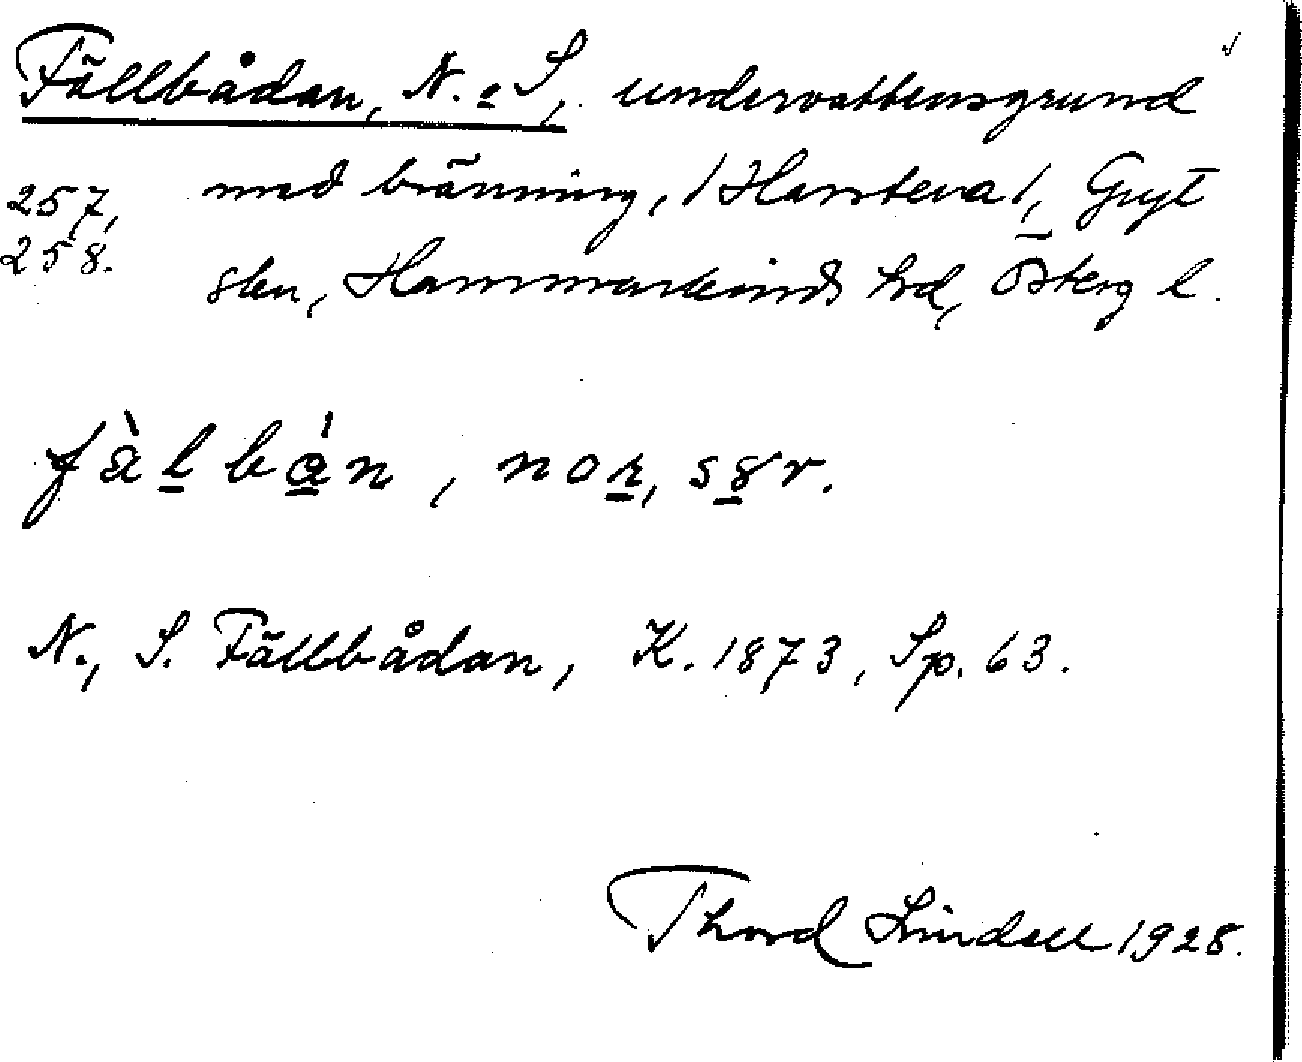 Fällbådan, N. o S, undervattensgrund
257, med bränning, /Harstena/, Gryt
258. skn, Hammarkinds hrd, Österg l.
fàlbán, nor, sər.
N., S. Fällbådan, K. 1873, Sp. 63.
Thord Lindell 1928.